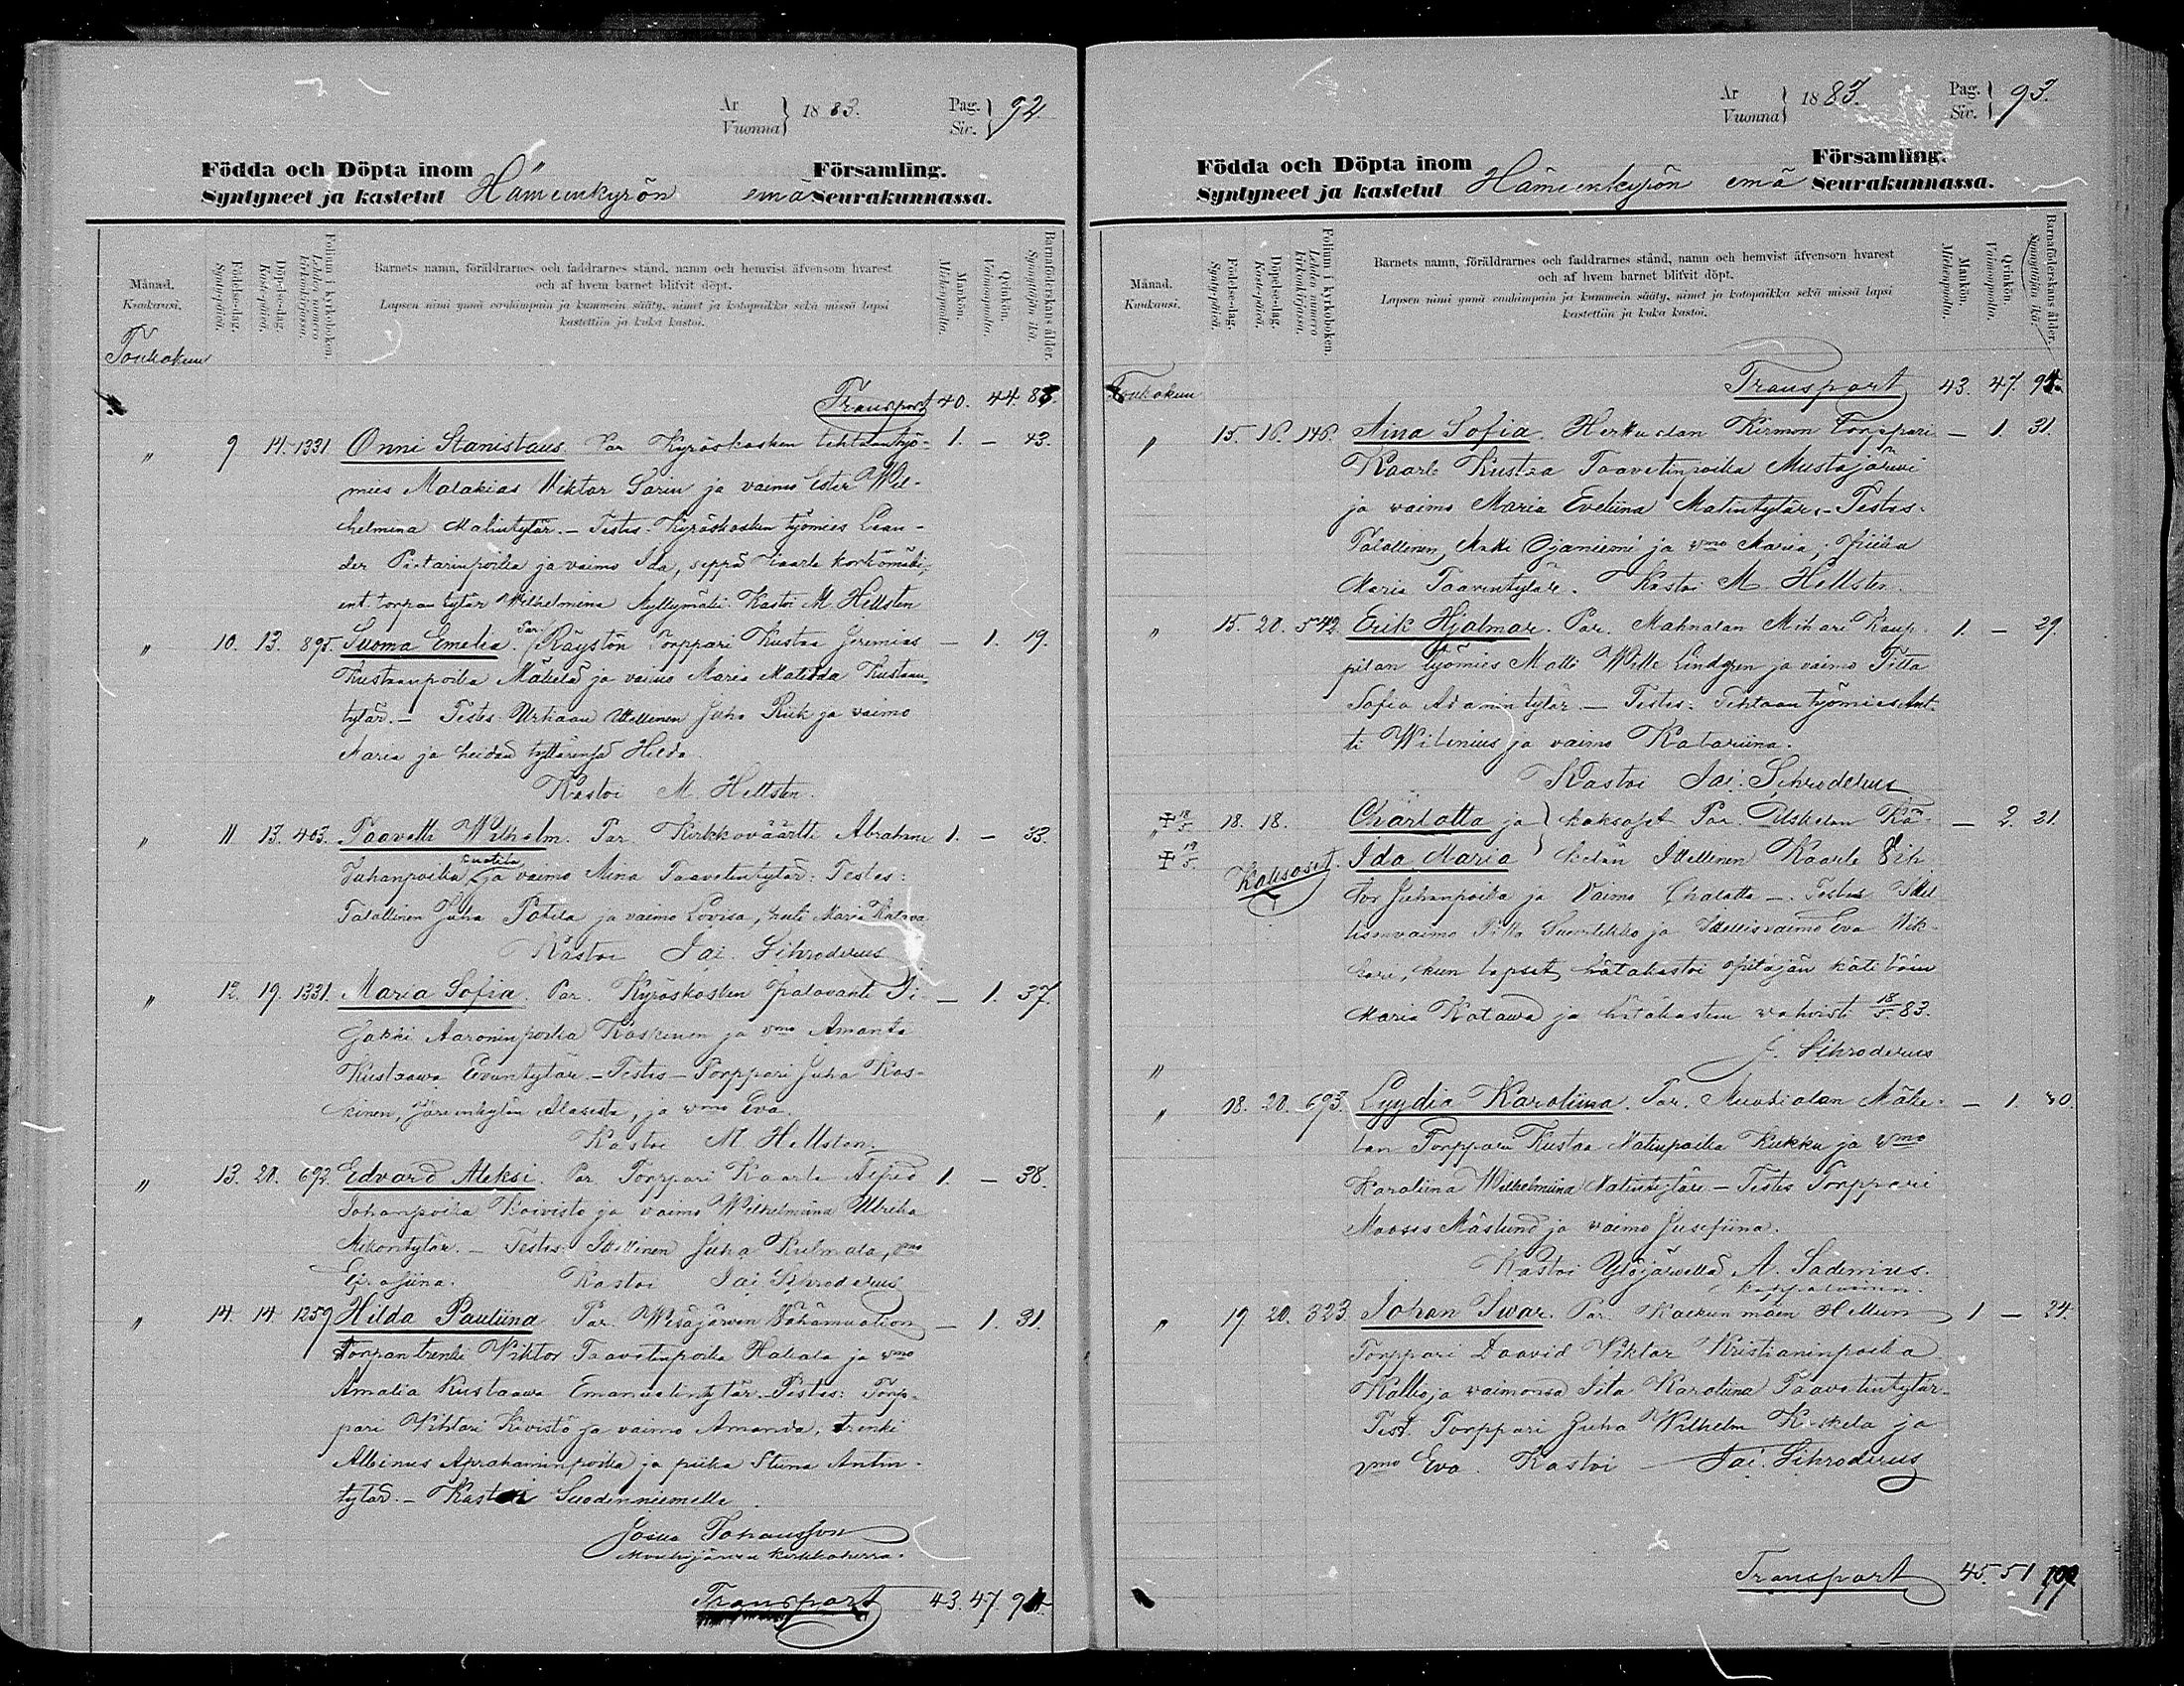 År
Vuonna } 1883.
Pag.
Siv. } 92.
Födda och Döpta inom
Syntyneet ja kastetut
Hämeenkyrön emä
Församling.
Seurakunnassa.
Månad.
Kuukausi.
Födelse-dag.
Syntypäivä.
Döpelse-dag.
Kastepäivä.
Folium i kyrkoboken.
Lehden numero
kirkonkirjassa.
Barnets namn, föräldrarnes och faddrarnes stånd, namn och hemvist äfvensom hvarest
och af hvem barnet blifvit döpt.
Lapsen nimi ynnä vanhimpain ja kummein sääty, nimet ja kotopaikka sekä missä lapsi
kastettiin ja kuka kastoi.
Mankön.
Miehenpuolia.
Qvinkön.
Vaimonpuolia.
Barnaföderskans ålder.
Synnyttäjän ikä.
Toukokuu
Transport 40. 44.
" 9 14. 1331 Onni Stanislaus. Par Kyröskosken tehtaantyö- 1. — 43.
mies Malakias Wiktor Sarin ja vaimo Ester Wil-
helmina Matintytär. — Testes: Kyröskosken työmies Lean-
der Pietarinpoika ja vaimo Ida, seppä Kaarle Korkiomäki,
ent. torpan tytär Wilhelmina Myllymäki. Kastoi M. Hellsten
" 10. 13. 895. Suoma Emelia. Par. Räystön Torppari Kustaa Jeremias — 1. 19.
Kustaanpoika Mäkelä ja vaimo Maria Matilda Kustaan-
tytär. — Testes Urhaan Itellinen Juho Riik ja vaimo
Maria ja heidän tyttärensä Hilda
Kastoi M. Hellsten.
" 11 13. 403. Paavetti Wilhelm. Par. Kirkkoväärtti Abraham 1. — 33.
Juhanpoika ja vaimo Miina Taavetintytär: Testes:
Talollinen Juha Pätilä ja vaimo Lovisa, Maria Katava
Kastoi Jai. Schroderus
" 12. 19. 1331. Maria Sofia. Par. Kyröskosken Palovahti Ii- — 1. 37.
Aaroninpoika Koskinen ja vmo Amanda
Kustaawa Eevantytär — Testes — Torppari Juha Kos-
kinen, Järvenkylän Alasesta, ja vmo Eva.
Kastoi M. Hellsten.
" 13. 20. 692. Edvard Aleksi. Par Torppari Kaarle Alfred 1. — 38.
Johanpoika Koivisto ja vaimo Wilhelmiina Ulrika
Mikontytär. — Testes: Itellinen Juha Kulmala, vmo
Efrosiina. Kastoi Jai Schroderus
" 14. 14. 1259 Hilda Pauliina Par. Wesajärven Vähämuotion — 1. 31.
Torpan trenki Viktor Taavetinpoika Hakala ja vmo
Amalia Kustaava Emanuelintytär. Testes: Torp-
pari Vihtari Kivistö ja vaimo Amanda, trenki
Albinus Aprahaminpoika ja piika Stiina Antin-
tytär. — Kastoi Suodenniemella
Josua Johansson
Mouhijärven kirkkoherra.
Transport 43. 47.
År
Vuonna } 1883.
Pag.
Siv. } 93.
Födda och Döpta inom
Syntyneet ja kastetut
Hämeenkyrön emä
Församling.
Seurakunnassa.
Månad.
Kuukausi.
Födelse-dag.
Syntypäivä.
Döpelse-dag.
Kastepäivä.
Folium i kyrkoboken.
Lehden numero
kirkonkirjassa.
Barnets namn, föräldrarnes och faddrarnes stånd, namn och hemvist äfvensom hvarest
och af hvem barnet blifvit döpt.
Lapsen nimi ynnä vanhimpain ja kummein sääty, nimet ja kotopaikka sekä missä lapsi
kastettiin ja kuka kastoi.
Mankön.
Miehenpuolia.
Qvinkön.
Vaimonpuolia.
Barnaföderskans ålder.
Synnyttäjän ikä.
Toukokuu Transport 43. 47.
" 15. 16. 146. Aina Sofia. Kirmon Torppari — 1. 31.
Kaarle Kustaa Taavetinpoika Mustajärvi
ja vaimo Maria Eveliina Matintytär. — Testes.
Talollinen, Antti Ojaniemi ja vmo Maria, piika
Maria Taavintytär. Kastoi M. Hellsten.
" 15. 20. 542. Erik Hjalmar. Par. Mahnalan Mihari Kaup- 1. — 29.
pilan työmies Matti Wille Lindgren ja vaimo Fiita
Sofia Adamin tytär. — Testes: Tehtaan työmies Ant-
ti Wilenius ja vaimo Katariina.
Kastoi Jai. Schroderus
" ✝ 18/5 18. 18. Charlotta ja } kaksoset Par. Uskelan Kä- — 2. 21.
✝ 19/5 Kaksoset. Ida Maria kelän Itellinen Kaarle Vik-
tor Juhanpoika ja Vaimo Chalotta —. Testes Itel-
lisenvaimo Suontikko ja Itellisvaimo Eva Wik-
kari, kun lapset hätäkastoi pitäjän kätilöin
Maria Katawa ja hätäkasteen vahvisti 18/5 83.
J. Schroderus
"
" 18. 20. 693. Lyydia Karoliina. Par. Muotialan Mäke- — 1. 40.
lan Torppari Kustaa Matinpoika Kukku ja vmo
Karoliina Wilhelmiina Matintytär — Testes Torppari
Mooses Mäslund ja vaimo Jusefiina.
Kastoi Ylöjärvellä A. Sadenius.
kappalainen.
" 19 20. 323. Johan Iwar. Par. Kalkunmäen Hellun 1 — 24.
Torppari Daavid Viktor Kristianinpoika
Kallio ja vaimonsa Iita Karoliina Taavetintytär
Test. Torppari Juha Wilhelm Koskela ja
vmo Eva. Kastoi — Jai. Schroderus
Transport 45. 51